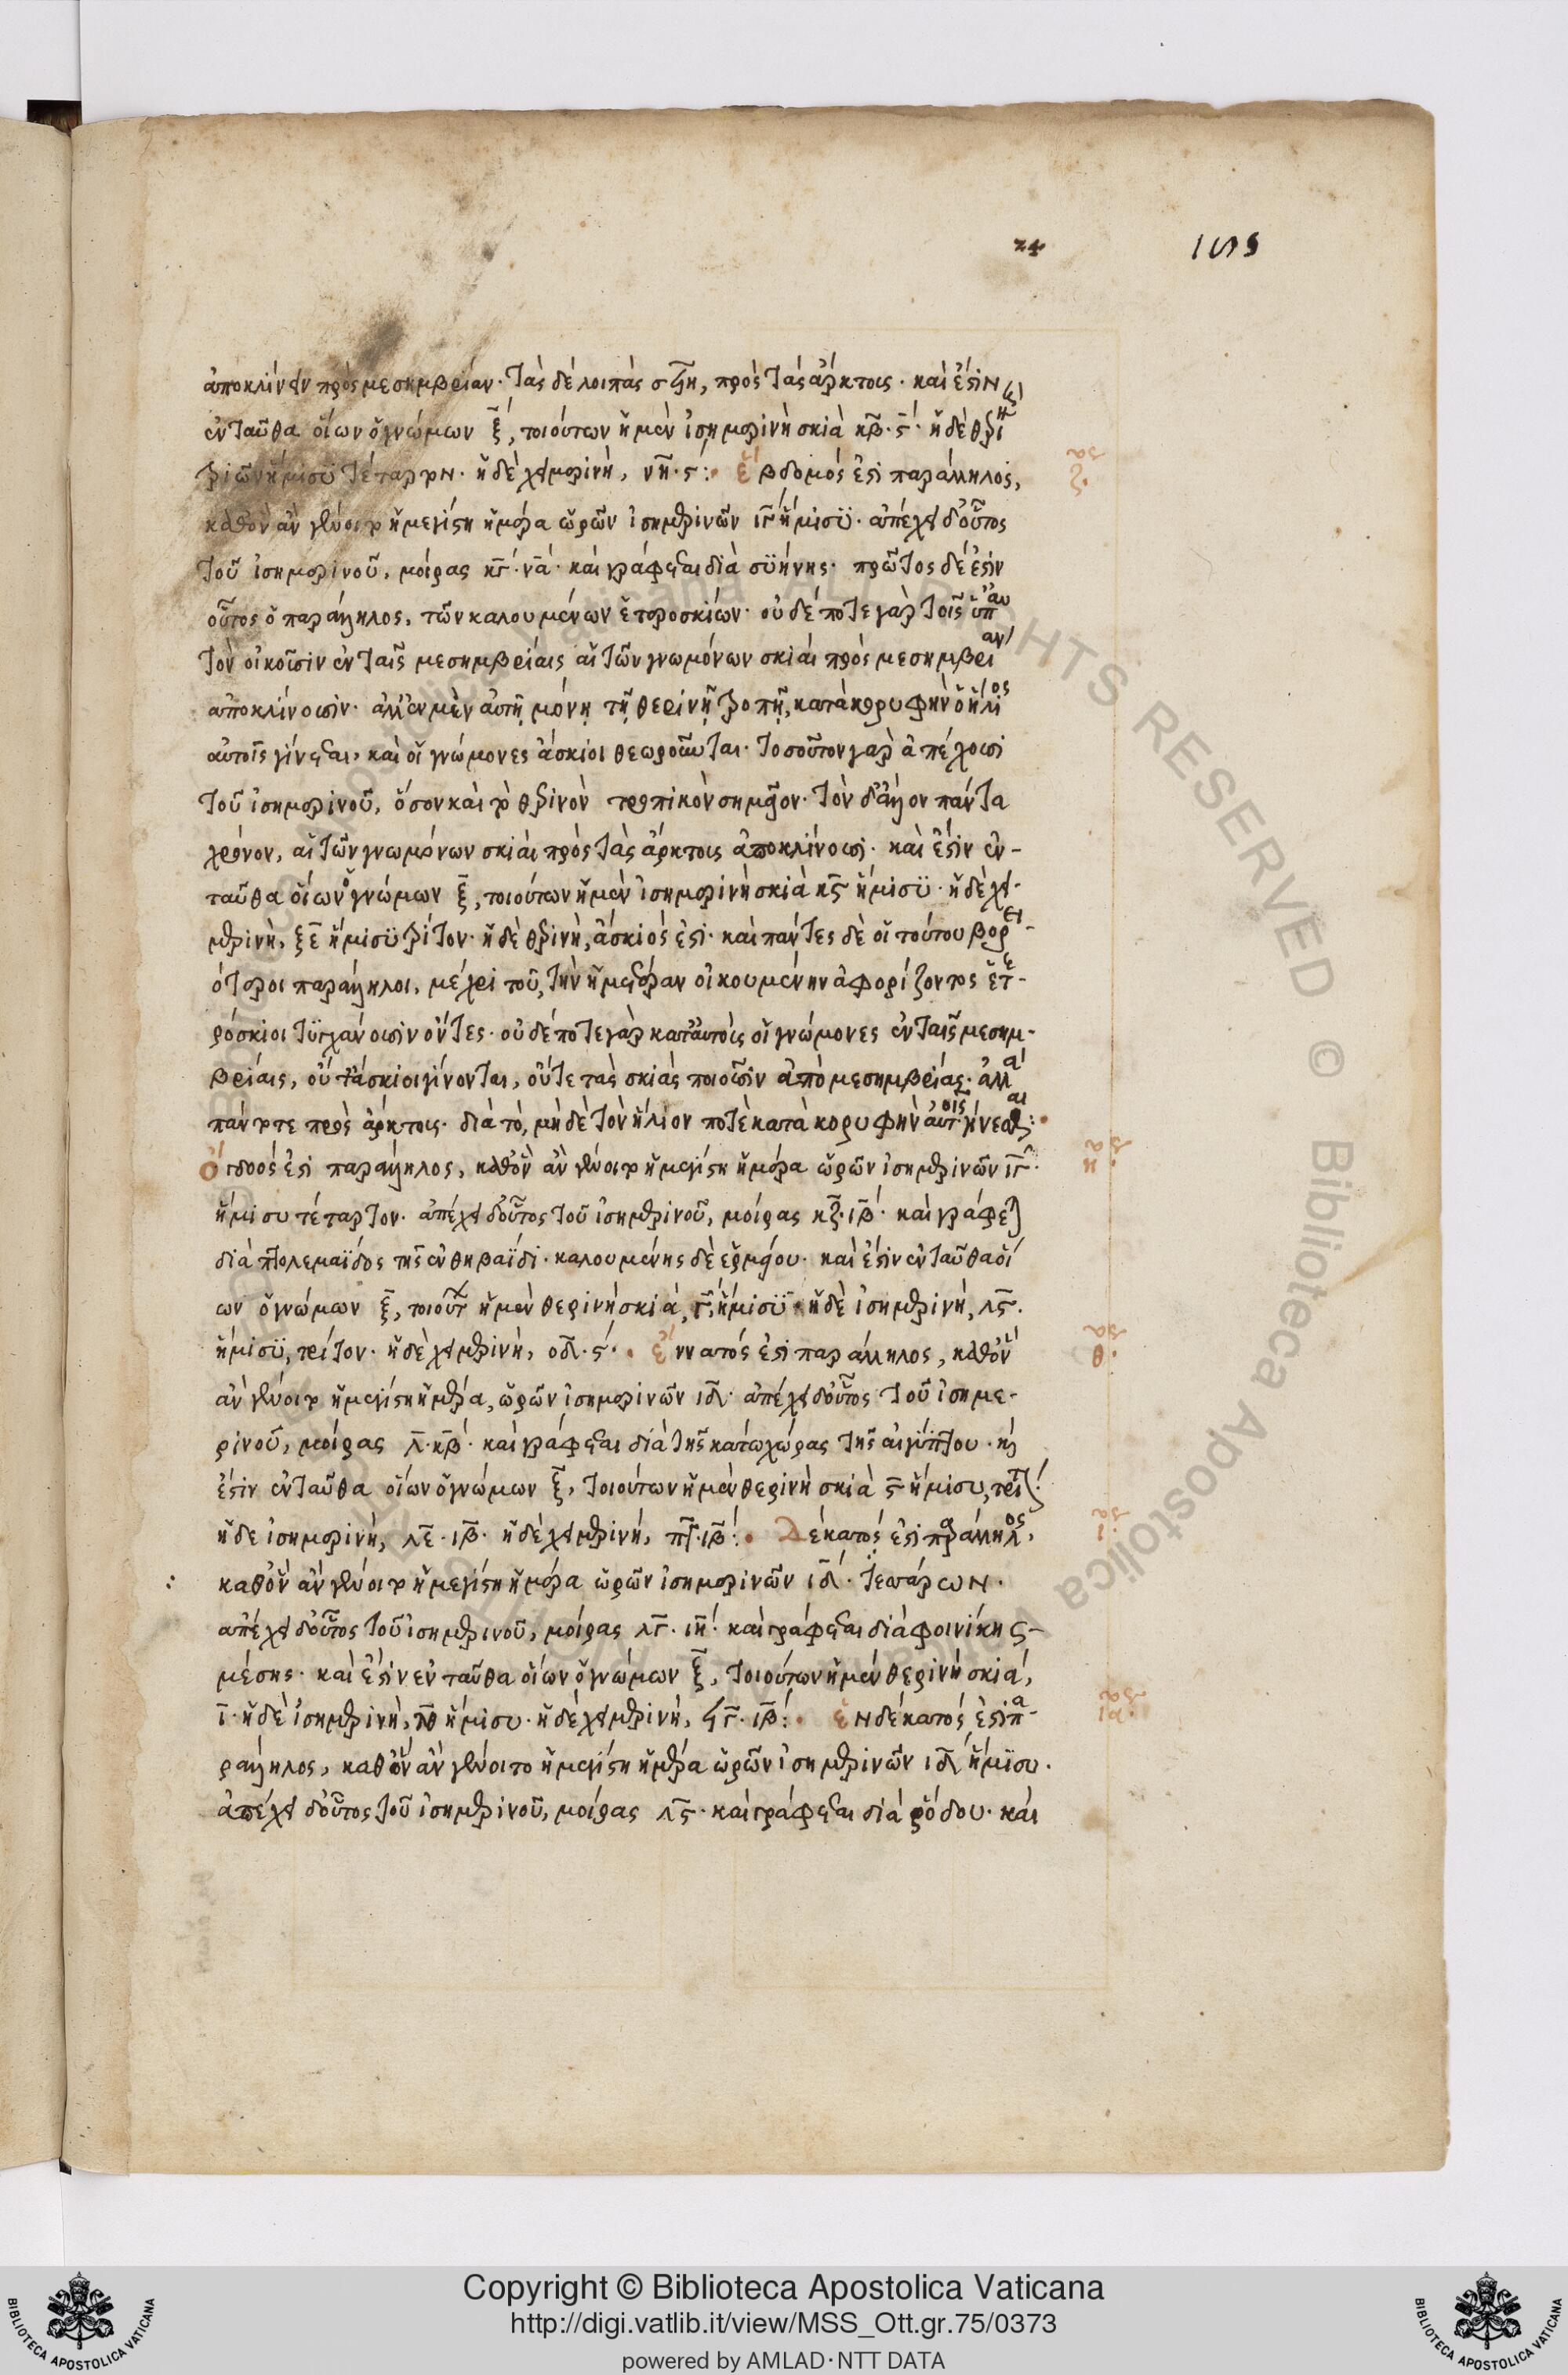 24 189
ἀποκλίνειν πρὸς μεσημβρίαν· τὰς δὲ λοιπὰς σϟη, πρὸς τὰς ἄρκτους· καὶ ἐστὶν
ἐνταῦθα οἵων ὁ γνώμων ξ, τοιούτων ἡ μὲν ἰσημερινὴ σκιὰ κβ· ϛ· ἡ δὲ θερινὴ
ἥμισυ τέταρτον· ἡ δὲ χειμερινή, νη· ϛ: ἕβδομός ἐστι παράλληλος,
καθ' ὃν ἂν γένοιτο ἡ μεγίστη ἡμέρα ὡρῶν ἰσημερινῶν ιγ ἥμισυ· ἀπέχει δ' οὗτος
τοῦ ἰσημερινοῦ, μοίρας κγ· να· καὶ γράφεται διὰ συήνης· πρῶτος δέ ἐστιν
οὗτος ὁ παράλληλος, τῶν καλουμένων ἑτεροσκίων· οὐδέποτε γὰρ τοῖς ὑπ' αὐ
τὸν οἰκοῦσιν ἐν ταῖς μεσημβρίαις αἱ τῶν γνωμόνων σκιαὶ πρὸς μεσημβρίαν
ἀποκλίνουσιν· ἀλλ' ἐν μὲν αὐτῇ μόνῃ τῇ θερινῇ τροπῇ, κατὰ κορυφὴν ὁ ἥλιος
αὐτοῖς γίνεται, καὶ οἱ γνώμονες ἄσκιοι θεωροῦνται· τοσοῦτον γὰρ ἀπέχουσι
τοῦ ἰσημερινοῦ, ὅσον καὶ τὸ θερινὸν τροπικὸν σημεῖον· τὸν δ' ἄλλον πάντα
χρόνον, αἱ τῶν γνωμόνων σκιαὶ πρὸς τὰς ἄρκτους ἀποκλίνουσι· καὶ ἐστὶν ἐν-
ταῦθα οἵων ὁ γνώμων ξ, τοιούτων ἡ μὲν ἰσημερινὴ σκιὰ κϛ ἥμισυ· ἡ δὲ χει-
μερινή, ξε ἥμισυ τρίτον· ἡ δὲ θερινή, ἄσκιός ἐστι· καὶ πάντες δὲ οἱ τούτου βορει-
ότεροι παράλληλοι, μέχρι τοῦ, τὴν ἡμετέραν οἰκουμένην ἀφορίζοντος ἑτε-
ρόσκιοι τυγχάνουσιν ὄντες· οὐδέποτε γὰρ κατ' αὐτοὺς οἱ γνώμονες ἐν ταῖς μεσημ-
βρίαις, οὔτ' ἄσκιοι γίνονται, οὔτε τὰς σκιὰς ποιοῦσιν ἀπὸ μεσημβρίας· ἀλλὰ
πάντοτε πρὸς ἄρκτους· διὰ τό, μηδὲ τὸν ἥλιον ποτὲ κατὰ κορυφὴν αὐτοῖς γίνεσθαι:
ὄγδοός ἐστι παράλληλος, καθ' ὃν ἂν γένοιτο ἡ μεγίστη ἡμέρα ὡρῶν ἰσημερινῶν ιγ·
ἥμισυ τέταρτον· ἀπέχει δ' οὗτος τοῦ ἰσημερινοῦ, μοίρας κζ· ιβ· καὶ γράφεται
διὰ πτολεμαΐδος τῆς ἐν θηβαΐδι· καλουμένης δὲ ἑρμείου· καὶ ἐστὶν ἐνταῦθα οἵ
ων ὁ γνώμων ξ, τοιούτων ἡ μὲν θερινὴ σκιά, γ, ἥμισυ· ἡ δὲ ἰσημερινή, λϛ.
ἥμισυ, τρίτον· ἡ δὲ χειμερινή, οδ· ϛ· ἔννατός ἐστι παράλληλος, καθ' ὃν
ἂν γένοιτο ἡ μεγίστη ἡμέρα, ὡρῶν ἰσημερινῶν ιδ· ἀπέχει δ' οὗτος τοῦ ἰσημε-
ρινοῦ, μοίρας λ· κβ· καὶ γράφεται διὰ τῆς κάτω χώρας τῆς αἰγύπτου· καὶ
ἐστὶν ἐνταῦθα οἵων ὁ γνώμων ξ, τοιούτων ἡ μὲν θερινὴ σκιὰ ϛ ἥμισυ, τρίτον·
ἡ δε ἰσημερινή, λε· ιβ· ἡ δὲ χειμερινή, πγ· ιβ: Δέκατός ἐστι παράλληλος,
καθ' ὃν ἂν γένοιτο ἡ μεγίστη ἡμέρα ὡρῶν ἰσημερινῶν ιδ· τεσσάρων·
ἀπέχει δ' οὗτος τοῦ ἰσημερινοῦ, μοίρας λγ· ιη· καὶ γράφεται διὰ φοινίκης
μέσης· καὶ ἐστὶν ἐνταῦθα οἵων ὁ γνώμων ξ, τοιούτων ἡ μὲν θερινὴ σκιά,
ι· ἡ δὲ ἰσημερινή, ἥμισυ· ἡ δὲ χειμερινή, ϟγ· ιβ: ἑνδέκατός ἐστι πα-
ράλληλος, καθ' ὃν ἂν γένοιτο ἡ μεγίστη ἡμέρα ὡρῶν ἰσημερινῶν ιδ ἥμισυ·
ἀπέχει δ' οὗτος τοῦ ἰσημερινοῦ, μοίρας λϛ· καὶ γράφεται διὰ ῥόδου· καὶ
ζ
η
θ
ι
ια
Copyright © Biblioteca Apostolica Vaticana
http://digi.vatlib.it/view/MSS_Ott.gr.75/0373
powered by AMLAD·NTT DATA
BIBLIOTECA APOSTOLICA VATICANA
BIBLIOTECA APOSTOLICA VATICANA